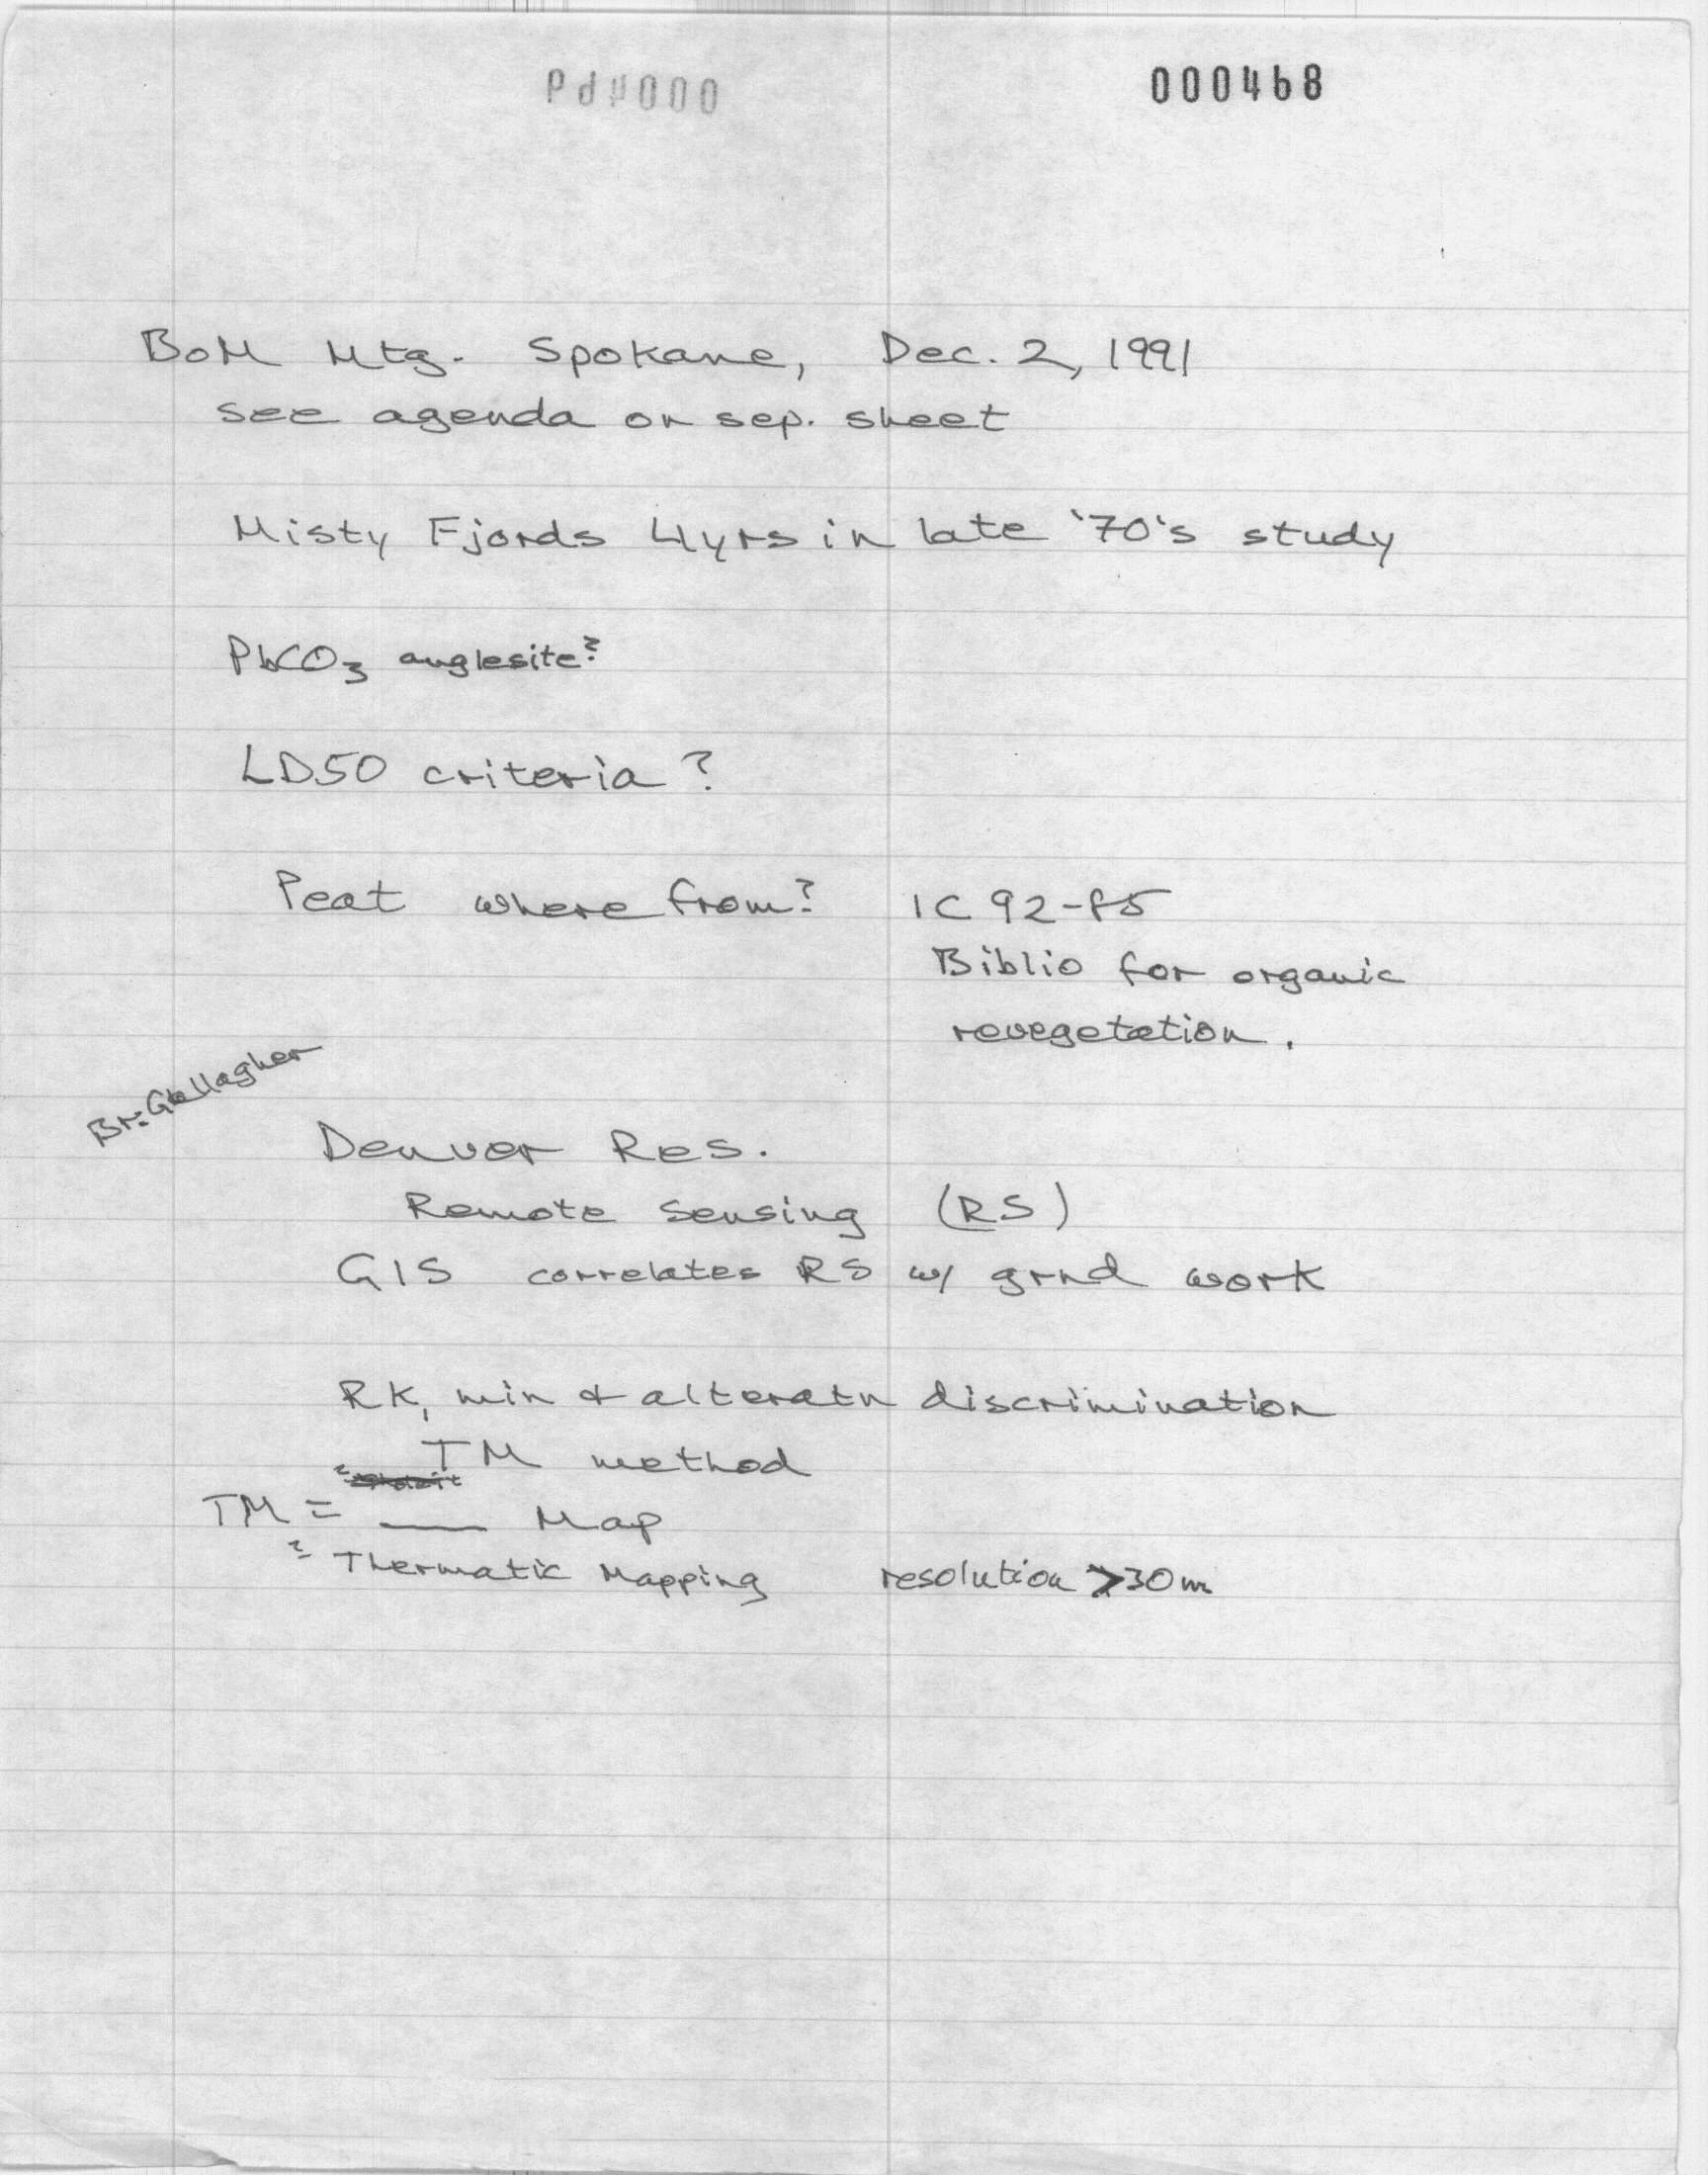 000468
BoM Mtg. Spokane, Dec. 2, 1991
see agenda on sep. sheet
Misty Fjords 4yrs in late '70's study
PbCO3 anglesite?
LD50 criteria?
Peat where from? IC 92-85
Biblio for organic
revegetation.
Gallagher
Denver Res.
Remote Sensing (RS)
GIS correlates RS w/ grnd work
RK, min & alteratn discrimination
TM method
TM = ___ Map
? Thermatic Mapping resolution >30m